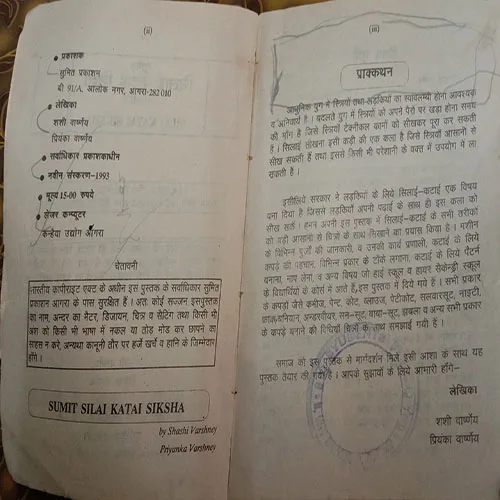 (ii)
प्रकाशक
सुमित प्रकाशन
बी 91/A, आलोक नगर, आगरा-282 010
लेखिका
शशी वार्ष्णेय
प्रियंका वार्ष्णेय
सर्वाधिकार प्रकाशकाधीन
नवीन संस्करण-1993
मूल्य 15-00 रुपये
लेजर कम्प्यूटर
कन्हैया उद्योग आगरा
चेतावनी
भारतीय कापीराइट एक्ट के अधीन इस पुस्तक के सर्वाधिकार सुमित
प्रकाशन आगरा के पास सुरक्षित हैं। अतः कोई सज्जन इसपुस्तक
का नाम, अन्दर का मैटर, डिजायन, चित्र व सैटिंग तथा किसी भी
अंश को किसी भी भाषा में नकल या तोड़ मोड़ कर छापने का
साहस न करें, अन्यथा कानूनी तौर पर हर्जे खर्चे व हानि के जिम्मेदार
होंगे।
SUMIT SILAI KATAI SIKSHA
by Shashi Varshney
Priyanka Varshney
(iii)
प्राक्कथन
आधुनिक युग में स्त्रियों तथा लड़कियों का स्वावलम्बी होना आवश्यक
व अनिवार्य है। बदलते युग में स्त्रियों को अपने पैरों पर खड़ा होना समय
की माँग है जिसे स्त्रियाँ टैक्नीकल कामों को सीखकर पूरा कर सकती
हैं। सिलाई सीखना इसी कड़ी की एक कला है जिसे स्त्रियाँ आसानी से
सीख सकती हैं तथा इससे किसी भी परेशानी के वक्त में उपयोग में ला
सकती हैं।
इसीलिये सरकार ने लड़कियों के लिये सिलाई-कटाई एक विषय
बना दिया है जिससे लड़कियाँ अपनी पढ़ाई के साथ ही इस कला को
सीख सकें। हमने अपनी इस पुस्तक में सिलाई-कटाई के सभी तरीकों
को बड़ी आसानी से चित्रों के साथ सिखाने का प्रयास किया है। मशीन
के विभिन्न पुर्जों की जानकारी, व उनकी कार्य प्रणाली, कटाई के लिये
कपड़े की पहचान, विभिन्न प्रकार के टाँके लगाना, कटाई के लिये पैटर्न
बनाना, नाप लेना, व अन्य विषय जो हाई स्कूल व हायर सैकेन्ड्री स्कूल
के विद्यार्थियों के कोर्स में आते हैं, इस पुस्तक में दिये गये हैं। सभी प्रकार
के कपड़ों जैसे कमीज, पैन्ट, कोट, ब्लाउज, पेटीकोट, सलवारसूट, नाइटी,
अन्डरवीयर, सन-सूट, बाबा-सूट, झबला व अन्य सभी प्रकार
के कपड़े बनाने की विधियाँ चित्रों के साथ समझाई गयी हैं।
समाज को इस पुस्तक से मार्गदर्शन मिले इसी आशा के साथ यह
पुस्तक तैयार की गयी है। आपके सुझावों के लिये आभारी होंगे-
लेखिका
शशी वार्ष्णेय
प्रियंका वार्ष्णेय